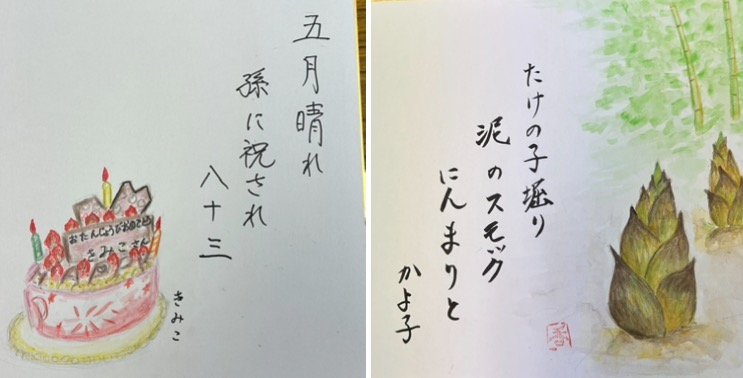 五月晴れ
孫に祝され
八十三
おたんじょうびおめでとう
きみこさん
きみこ
たけの子堀り
泥のスモック
にんまりと
かよ子